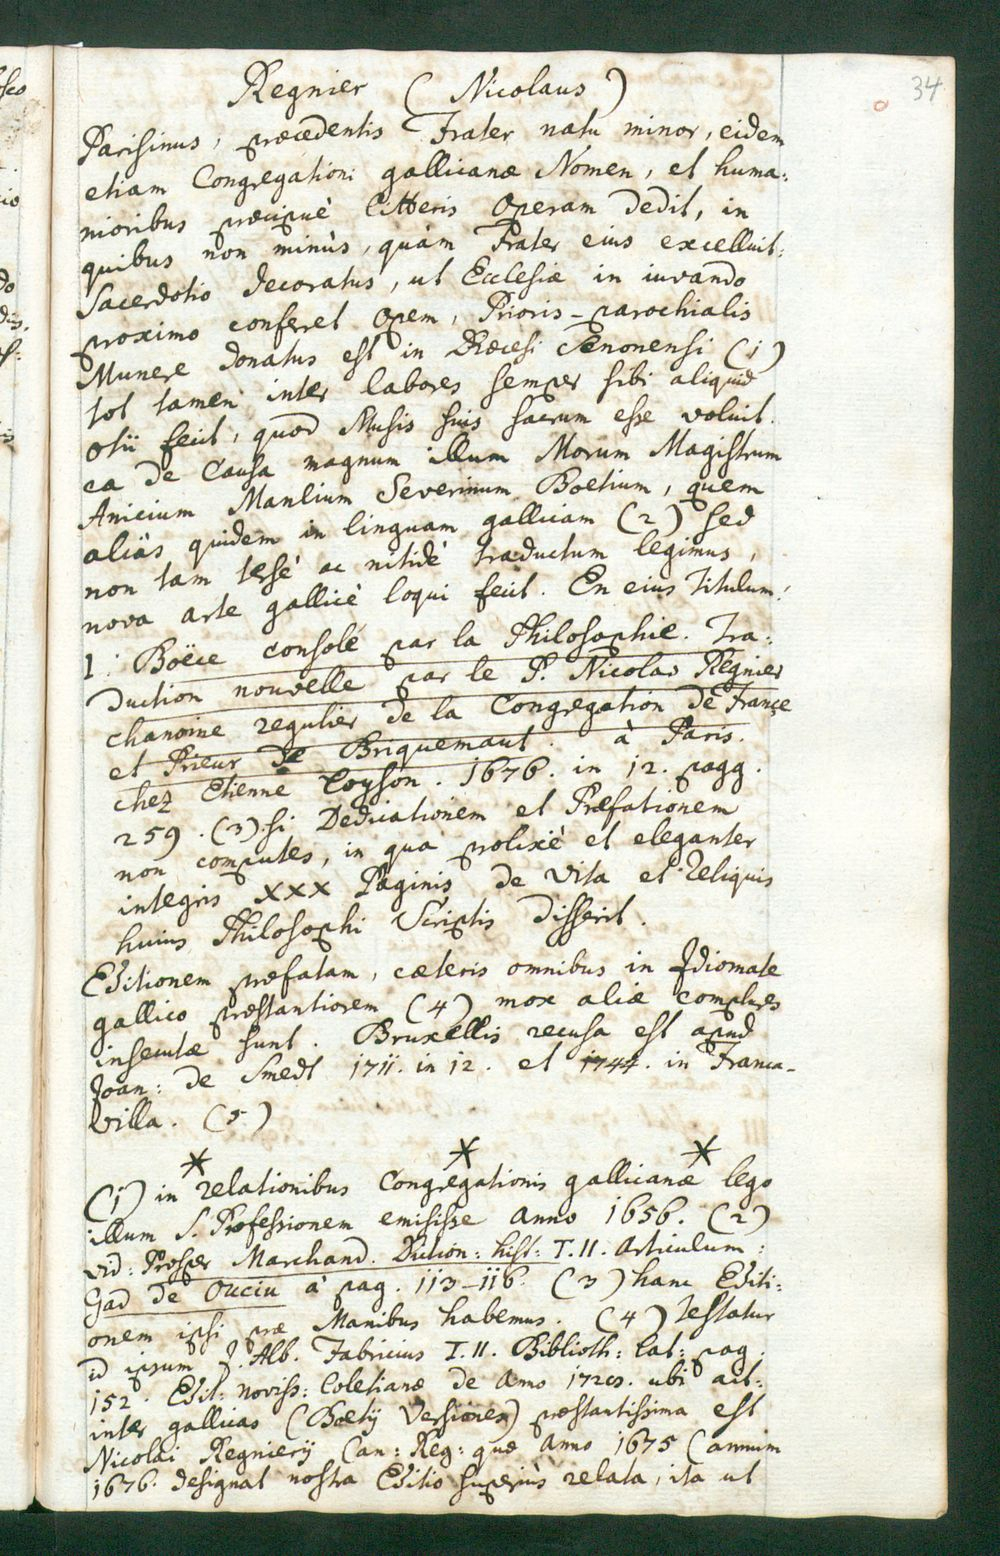 34
Regnier (Nicolaus)
Parisinus, præcedentis Frater natu minor, eidem
etiam Congregationi gallicanæ Nomen, et huma:
nioribus præcipuè litteris operam dedit, in
quibus non minùs, quàm Frater eius excelluit:
Sacerdotio decoratus, ut Ecclesiæ in iuvando
proximo conferet opem, Prioris-parochialis
Munere donatus est in Diœcesi Senonensi (1)
tot tamen inter labores semper sibi aliquid
otii fecit, quod Musis suis sacrum esse voluit.
ea de Causa magnum illum Morum Magistrum
Anicium Manlium Severinum Boetium, quem
aliàs quidem in linguam gallicam (2) sed
non tam tersè ac nitidè traductum legimus,
nova arte gallicè loqui fecit. En eius Titulum:
1. Boëce consolé par la Philosophie. Tra:
duction nouvelle par le P. Nicolas Regnier
chanoine regulier de la Congregation de France
et Prieur de Briquemaut. à Paris.
chez Etienne Loyson. 1676. in 12. pagg.
259. (3). si Dedicationem et Præfationem
non computes, in qua prolixè et eleganter
integris XXX Paginis de vita et reliquis
huius Philosophi Scriptis disserit.
Editionem præfatam, cæteris omnibus in Idiomate
gallico præstantiorem (4) mox aliæ complures
insecutæ sunt. Bruxellis recusa est apud
Joan: de Smedt 1711. in 12. et 1744. in Franca-
villa. (5)
* * *
(1) in relationibus Congregationis gallicanæ lego
illum S. Professionem emisisse anno 1656. (2)
vid: Prosper Marchand. Diction: hist: T. II. articulum:
Gad de Ouciu à pag. 113-116. (3) hanc Editi:
onem ipsi præ Manibus habemus. (4) Testatur
id ipsum J. Alb. Fabricius T. II. Biblioth: lat: pag.
152. Edit: noviss: Coletianæ de Anno ubi ait:
inter gallicas (Boetij Versiones) præstantissima est
Nicolai Regnierij Can: Reg: quæ Anno 1675 (annum
1676. designat nostra Editio superiùs relata, ita ut